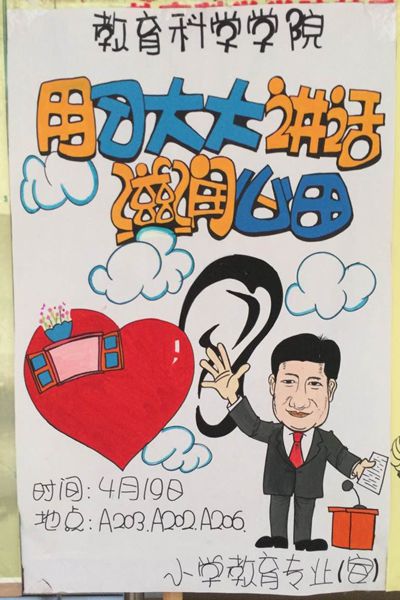 教育科学学院
用习大大讲话
滋润心田
时间：4月19日
地点：A203.A202.A206.
小学教育专业(宣)